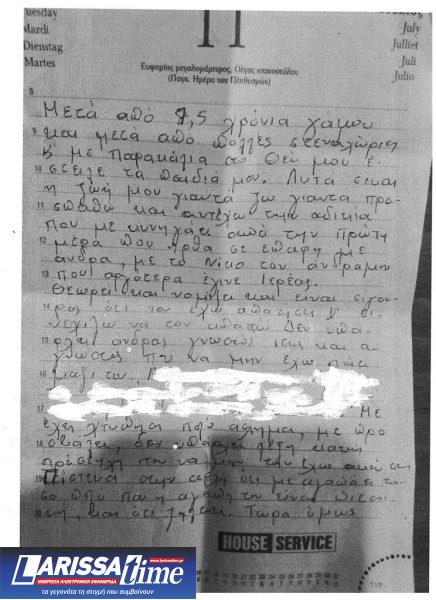 Tuesday
Mardi
Dienstag
Martes
11
July
Juillet
Juli
Julio
Ευφημίας μεγαλομάρτυρος, Όλγας ισαποστόλου
(Παγκ. Ημέρα των Πληθυσμών)
8
Μετά από 7,5 χρόνια γάμου
9 και μετά από πολλές στεναχώριες
κ' με παρακάλια στο Θεό μου έ-
10 στειλε τα παιδιά μου. Αυτά είναι
η ζωή μου γιαυτά ζω γιαυτά προ-
11 σπαθώ και αντέχω την αδικία
που με κυνηγάει από την πρώτη
12 μέρα που ήρθα σε επαφή με
άνδρα, με το Νίκο τον άνδρα μου
13 που αργότερα έγινε Ιερέας.
Θεωρεί και νομίζει και είναι σίγου-
14 ρος ότι τον έχω απατήσει κ' συ-
νεχίζω να τον απατώ. Δεν υπά-
15 ρχει άνδρας γνωστός ίσως και α-
γνωστος που να μην έχω πάει
16 μαζί του.
17 Με
έχει χτυπήσει πολύ άσχημα, με προ
18 σβάλει, δεν υπάρχει λέξη
που να μην την έχω ακούσει
19 Πίστευα στην αρχή ότι με αγαπάει τό-
σο πολύ που η αγάπη του είναι
20 και ότι ζηλεύει. Τώρα όμως
HOUSE SERVICE
LARISSAtime
www.larissatime.gr
ΗΜΕΡΗΣΙΑ ΗΛΕΚΤΡΟΝΙΚΗ ΕΦΗΜΕΡΙΔΑ
τα γεγονότα τη στιγμή που συμβαίνουν